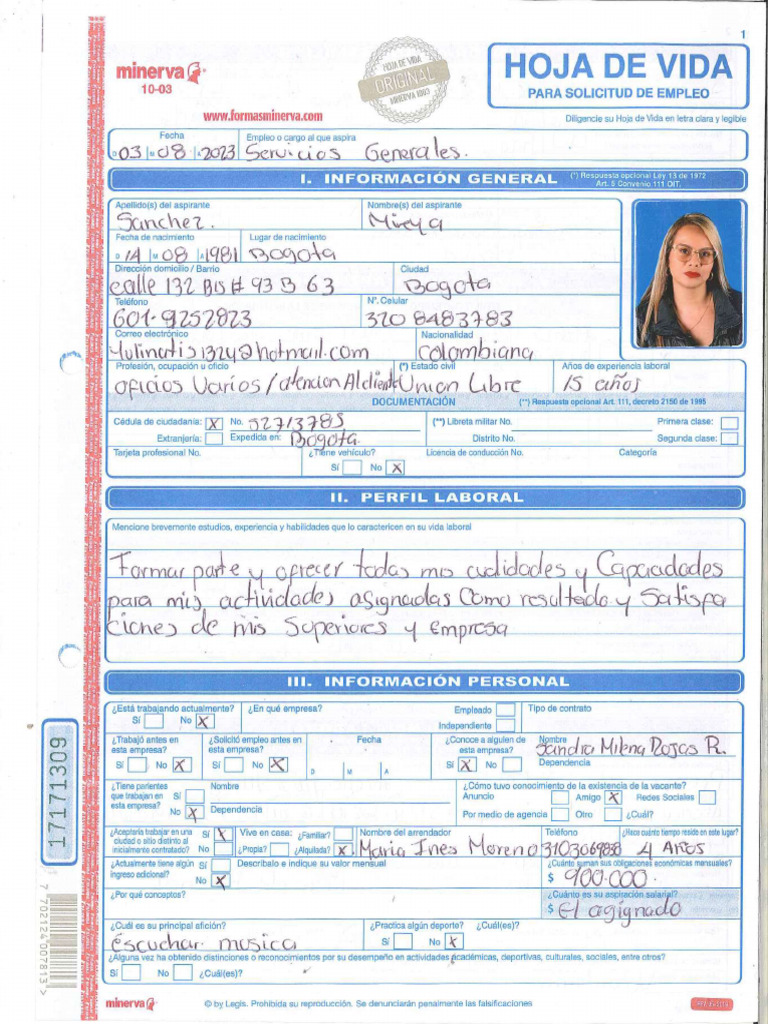 1
minerva
10-03
HOJA DE VIDA
ORIGINAL
MINERVA 1003
HOJA DE VIDA
PARA SOLICITUD DE EMPLEO
www.formasminerva.com
Diligencie su Hoja de Vida en letra clara y legible
Fecha Empleo o cargo al que aspira
D 03 M 08 A 2023 Servicios Generales.
I. INFORMACIÓN GENERAL (*) Respuesta opcional Ley 13 de 1972 Art. 5 Convenio 111 OIT.
Apellido(s) del aspirante Nombre(s) del aspirante
Sanchez. Mireya
Fecha de nacimiento Lugar de nacimiento
D 14 M 08 A 1981 Bogota
Dirección domicilio / Barrio Ciudad
calle 132 Bis # 93 B 63 Bogota
Teléfono N°. Celular
601-9252823 320 8483783
Correo electrónico Nacionalidad
Yulinatis1324@hotmail.com Colombiana
Profesión, ocupación u oficio (*) Estado civil Años de experiencia laboral
oficios Varios / atencion Al cliente Union Libre 15 años
DOCUMENTACIÓN (**) Respuesta opcional Art. 111, decreto 2150 de 1995
Cédula de ciudadanía: X No. 52713785 (**) Libreta militar No. Primera clase:
Extranjería: Expedida en: Bogota. Distrito No. Segunda clase:
Tarjeta profesional No. ¿Tiene vehículo? Licencia de conducción No. Categoría
Sí No X
II. PERFIL LABORAL
Mencione brevemente estudios, experiencia y habilidades que lo caractericen en su vida laboral
Formar parte y ofrecer todas mis cualidades y Capacidades
para mis actividades asignadas Como resultado y Satisfa
ciones de mis Superiores y empresa
III. INFORMACIÓN PERSONAL
¿Está trabajando actualmente? ¿En qué empresa? Empleado Tipo de contrato
Sí No X Independiente
¿Trabajó antes en esta empresa? ¿Solicitó empleo antes en esta empresa? Fecha ¿Conoce a alguien de esta empresa? Nombre Sandra Milena Rojas R.
Sí No X Sí No X D M A Sí X No Dependencia
¿Tiene parientes que trabajan en esta empresa? Sí Nombre ¿Cómo tuvo conocimiento de la existencia de la vacante?
Anuncio Amigo X Redes Sociales
No X Dependencia Por medio de agencia Otro ¿Cuál?
¿Aceptaría trabajar en una ciudad o sitio distinto al inicialmente contratado? Sí X No Vive en casa: ¿Familiar? ¿Propia? ¿Alquilada? X Nombre del arrendador Teléfono ¿Hace cuánto tiempo reside en este lugar?
Maria Ines Moreno 3103069888 4 Años
¿Actualmente tiene algún ingreso adicional? Sí No X Descríbalo e indique su valor mensual ¿Cuánto suman sus obligaciones económicas mensuales?
$ 900.000.
¿Por qué conceptos? ¿Cuánto es su aspiración salarial?
$ El asignado
¿Cuál es su principal afición? ¿Practica algún deporte? ¿Cuál(es)?
escuchar musica Sí No X
¿Alguna vez ha obtenido distinciones o reconocimientos por su desempeño en actividades académicas, deportivas, culturales, sociales, entre otros?
Sí No ¿Cuál(es)?
minerva © by Legis. Prohibida su reproducción. Se denunciarán penalmente las falsificaciones
17171309
7 702124 007813 >